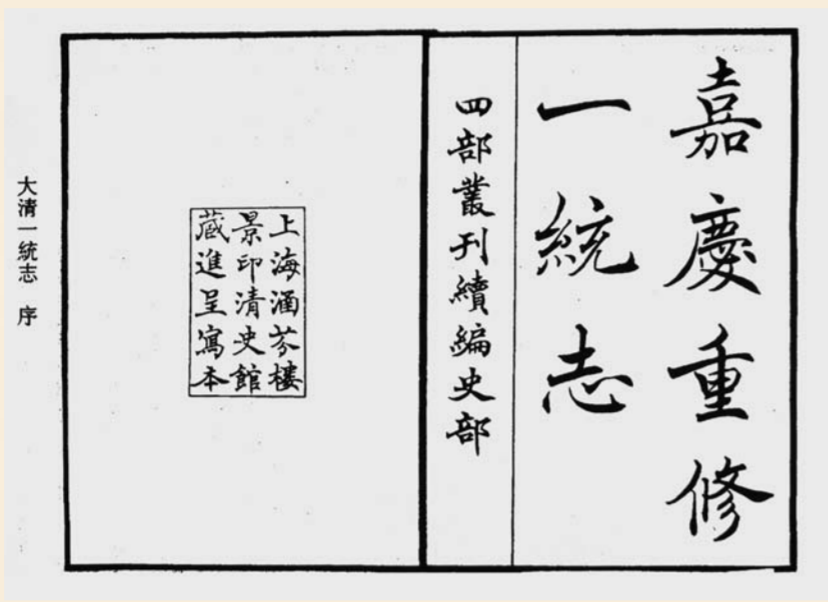 嘉慶重修
一統志
四部叢刊續編史部
上海涵芬樓
景印清史館
蔵進呈寫本
大清一統志 序